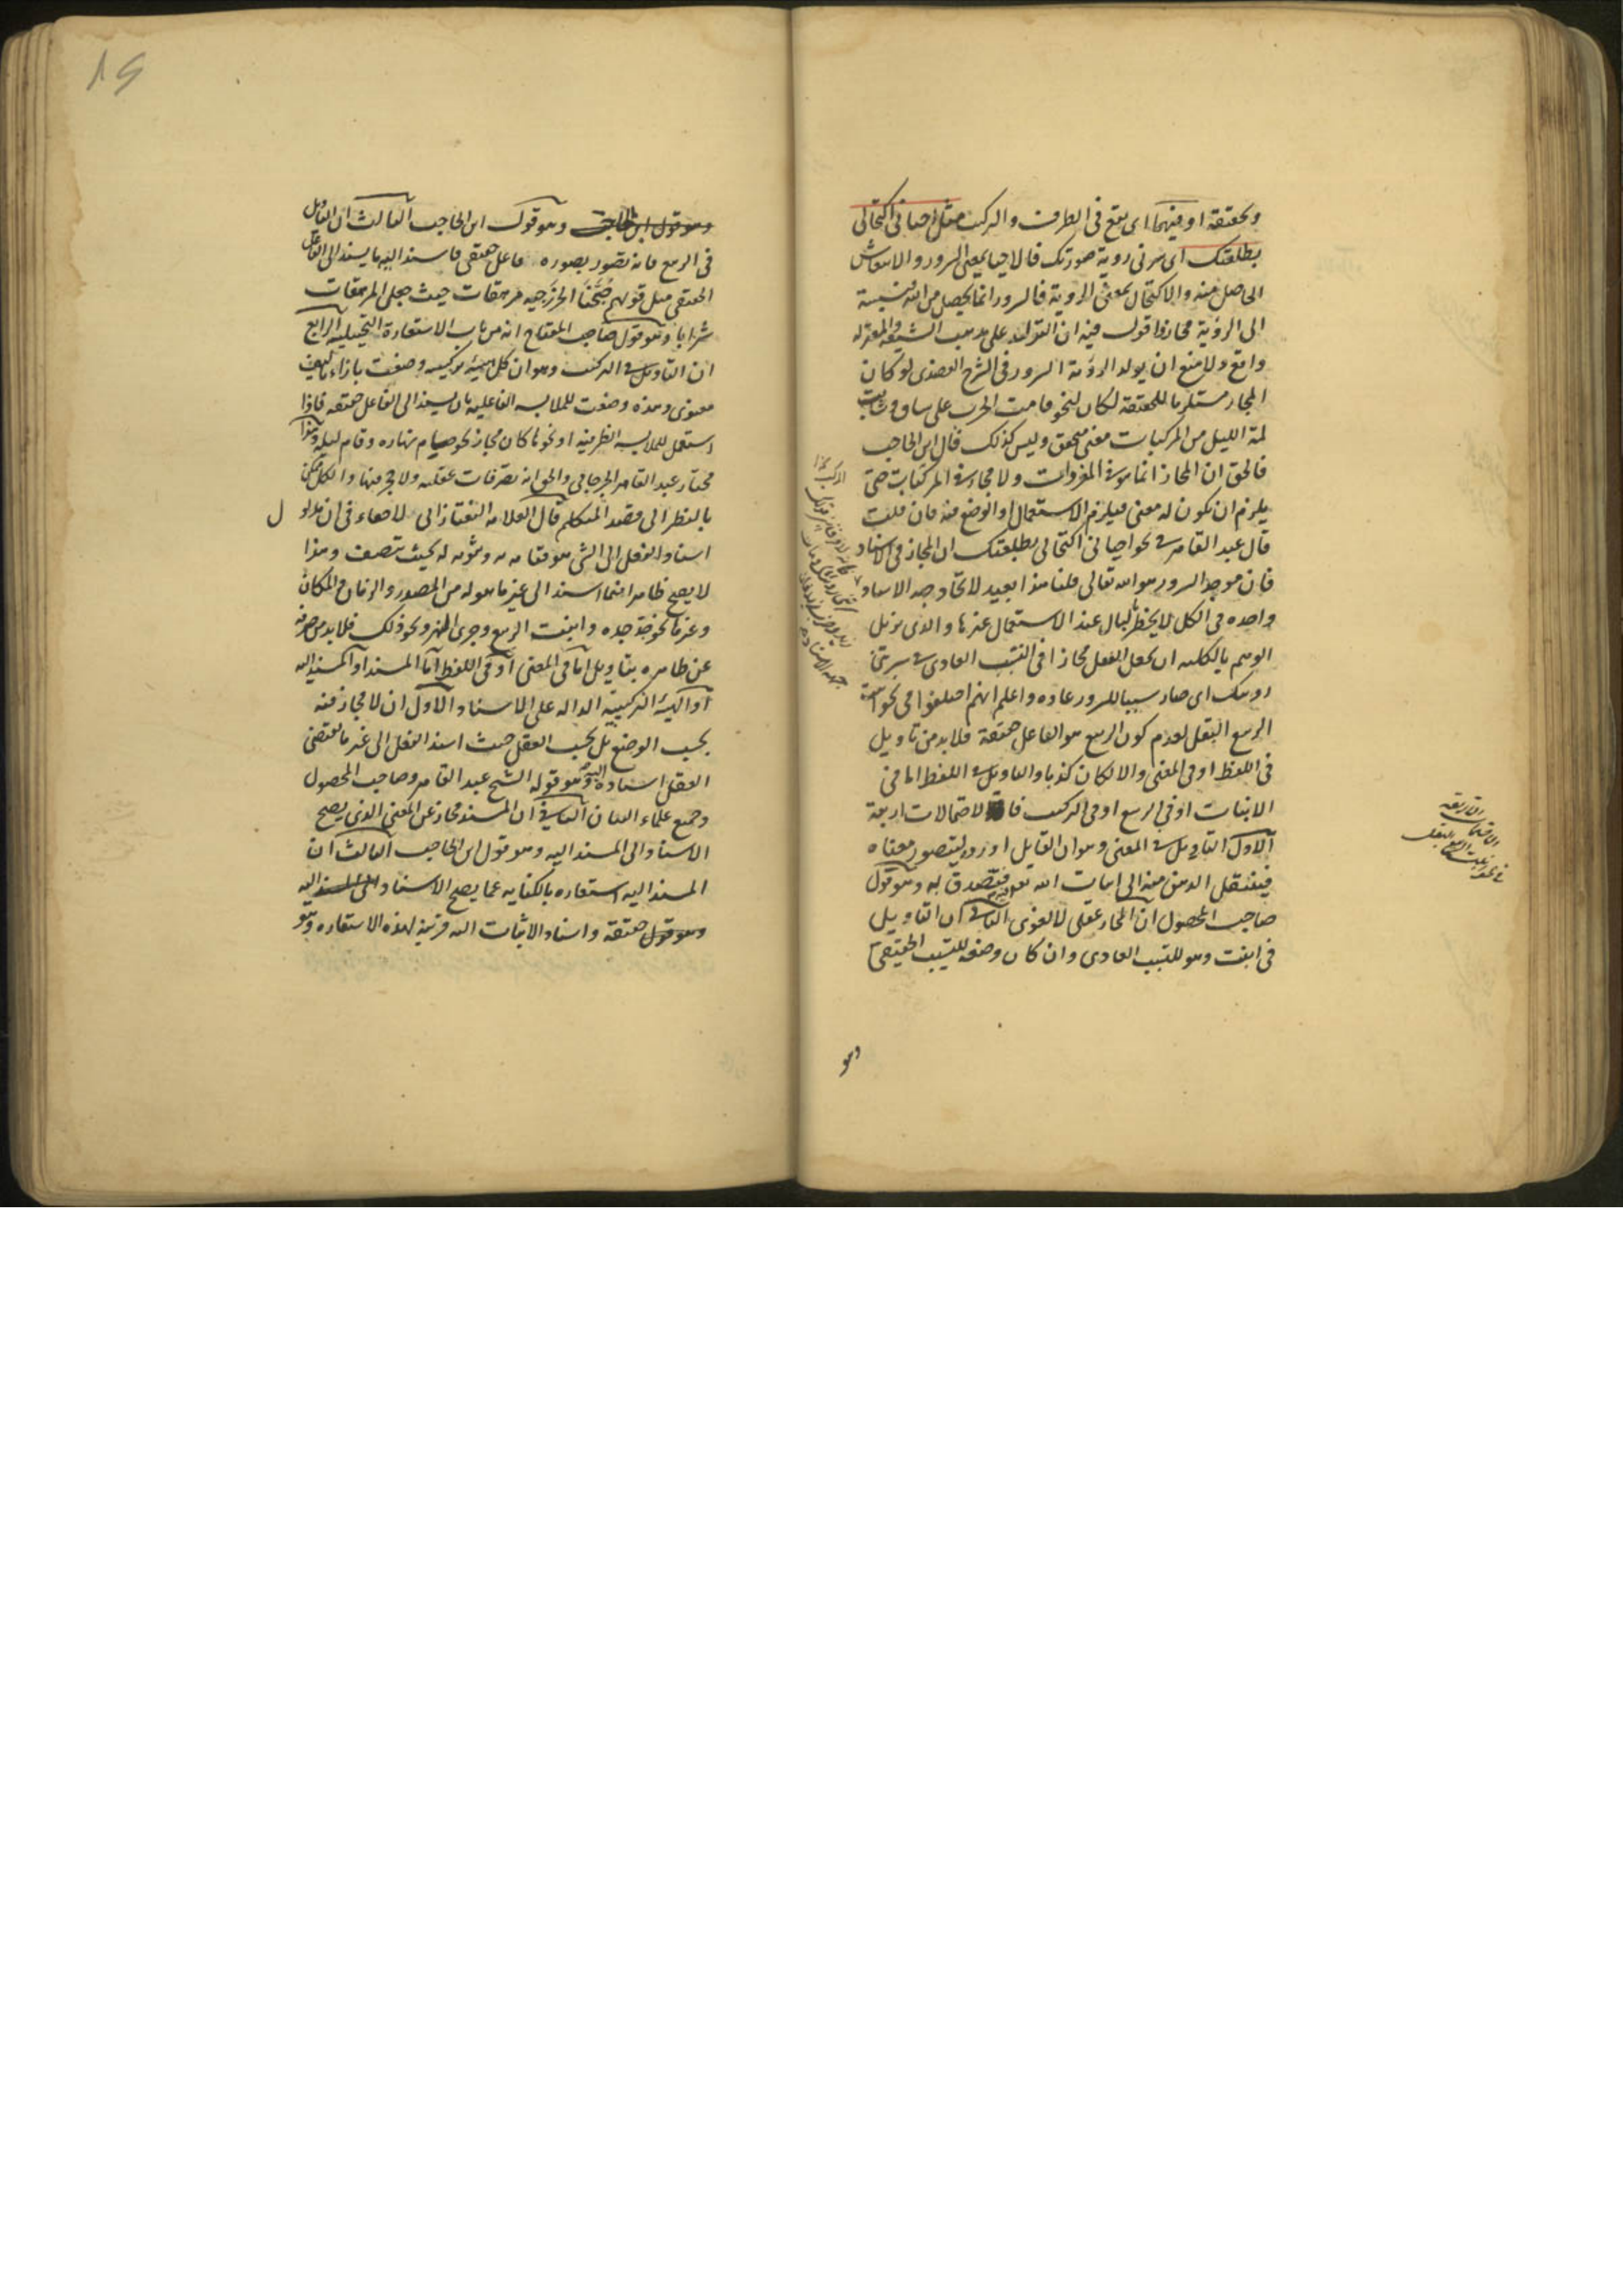 وحقيقة او فيهما اى يقع فى الطرف والمركب مثل احيانى اكتحالى
بطلعتك اى سرنى رؤية صورتك فالاحيا بمعنى السرور والانتعاش
الحاصل منه والاكتحال بمعنى الروية فالسرور انما يحصل من الله فنسبة
الى الروية مجاز واقول فيه ان التولد على مذهب الشيعة والمعتزلة
واقع ولا منع ان يولد الروية السرور وفى الشرح العضدى لو كان
المجاز مستلزما للحقيقة لكان لنحو قامت الحرب على ساق وشابت
لمة الليل من المركبات معنى متحقق وليس كذلك قال ابن الحاجب
فالحق ان المجاز انما هو فى المفردات ولا مجاز فى المركبات حتى
يلزم ان يكون له معنى فيلزم الاستعمال او الوضع فيه فان قلت
قال عبد القاهر فى نحو احيانى اكتحالى بطلعتك ان المجاز فى الاسناد
فان موجد السرور هو الله تعالى قلنا هذا بعيد لاتحاد جهة الاسناد
واحدة فى الكل لا يخطر بالبال عند الاستعمال غيرها والذى يزيل
الوهم بالكلية ان يجعل الفعل مجازا فى التسبب العادى فى سرتنى
رويتك اى صار سببا للسرور عادة واعلم انهم اختلفوا فى نحو انبت
الربيع البقل لعدم كون الربيع هو الفاعل حقيقة فلا بد من تاويل
فى اللفظ او فى المعنى والا لكان كذبا والتاويل فى اللفظ اما فى
الانبات او فى الربيع او فى التركيب فالاحتمالات اربعة
الاول التاويل فى المعنى وهو ان القايل اورده ليتصور معناه
فينتقل الذهن منه الى انبات الله تعالى فيه فيصدق به وهو قول
صاحب المحصول ان المجاز عقلى لا لغوى الثانى ان التاويل
فى انبت وهو للتسبب العادى وان كان وضعه للتسبب الحقيقى
وهو
وهو قول ابن الحاجب وهو قول ابن الحاجب الثالث ان التاويل
فى الربيع فانه تصور بصورة فاعل حقيقى فاسند اليه ما يسند الى الفاعل
الحقيقى مثل قولهم صبحنا الخزرجية مرهفات حيث جعل المرهفات
شرابا وهو قول صاحب المفتاح انه من باب الاستعارة التخييلية الرابع
ان التاويل فى التركيب وهو ان كل هيئة تركيبية وضعت بازاء تاليف
معنوى وهذه وضعت للملابسة الفاعلية بان يسند الى الفاعل حقيقة فاذا
استعمل للملابسة الظرفية او نحوها كان مجازا نحو صيام نهاره وقام ليله وهذا
مختار عبد القاهر الجرجانى والحق انه تصرفات عقلية ولا حجر فيها والكل ممكن
بالنظر الى قصد المتكلم قال العلامة التفتازانى لا خفاء فى ان مدلول
اسناد الفعل الى الشى هو قيامه به وثبوته له بحيث يتصف وهذا
لا يصح ظاهرا فيما اسند الى غير ما هو له من المصدر والزمان والمكان
وغيرها نحو جد جده وانبت الربيع وجرى النهر ونحو ذلك فلا بد من صرفه
عن ظاهره بتاويل اما فى المعنى او فى اللفظ اما المسند او المسند اليه
او الهيئة التركيبية الدالة على الاسناد الاول ان لا مجاز فيه
بحسب الوضع بل بحسب العقل حيث اسند الفعل الى غير ما يقتضى
العقل اسناده اليه وهو قول الشيخ عبد القاهر وصاحب المحصول
وجميع علماء البيان الثانى ان المسند مجاز عن المعنى الذى يصح
الاسناد الى المسند اليه وهو قول ابن الحاجب الثالث ان
المسند اليه استعارة بالكناية عما يصح الاسناد الى المسند اليه
وهو قول حقيقة واسناد الاثبات اليه قرينة لهذه الاستعارة وهو